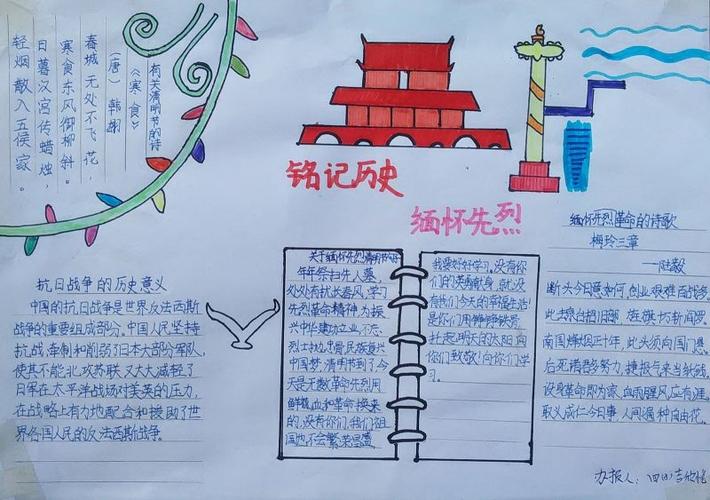 有关清明节的诗
《寒食》
(唐) 韩翃
春城无处不飞花,
寒食东风御柳斜。
日暮汉宫传蜡烛,
轻烟散入五侯家。
铭记历史
缅怀先烈
抗日战争的历史意义
中国的抗日战争是世界反法西斯
战争的重要组成部分。中国人民坚持
抗战,牵制和削弱了日本大部分军队,
使其不能北攻苏联,又大大减轻了
日军在太平洋战场对美英的压力,
在战略上有力地配合和援助了世
界各国人民的反法西斯战争。
关于缅怀先烈清明节
年年祭扫先人墓,
处处有扰长春风,学习
先烈革命精神,为振
兴中华建功立业,不忘
烈士
梦,清明节到了,今
天是无数革命先烈用
鲜血和革命换来
的,没有你们,我们祖
国也不会繁荣昌盛
我要好好学习,没有你
们的英勇献身,就没
有我们今天的幸福生活!
是你们用铮铮铁骨
托起明天的太阳,向
你们致敬!向你们学
习。
缅怀先烈革命的诗歌
梅岭三章
—陈毅
断头今日意如何,创业艰难百战多。
此去泉台招旧部,旌旗十万斩阎罗。
南国烽烟正十年,此头须向国门悬。
后死诸君多努力,捷报飞来当纸钱。
投身革命即为家,血雨腥风应有涯。
取义成仁今日事,人间遍种自由花。
办报人:四(4)吉欣